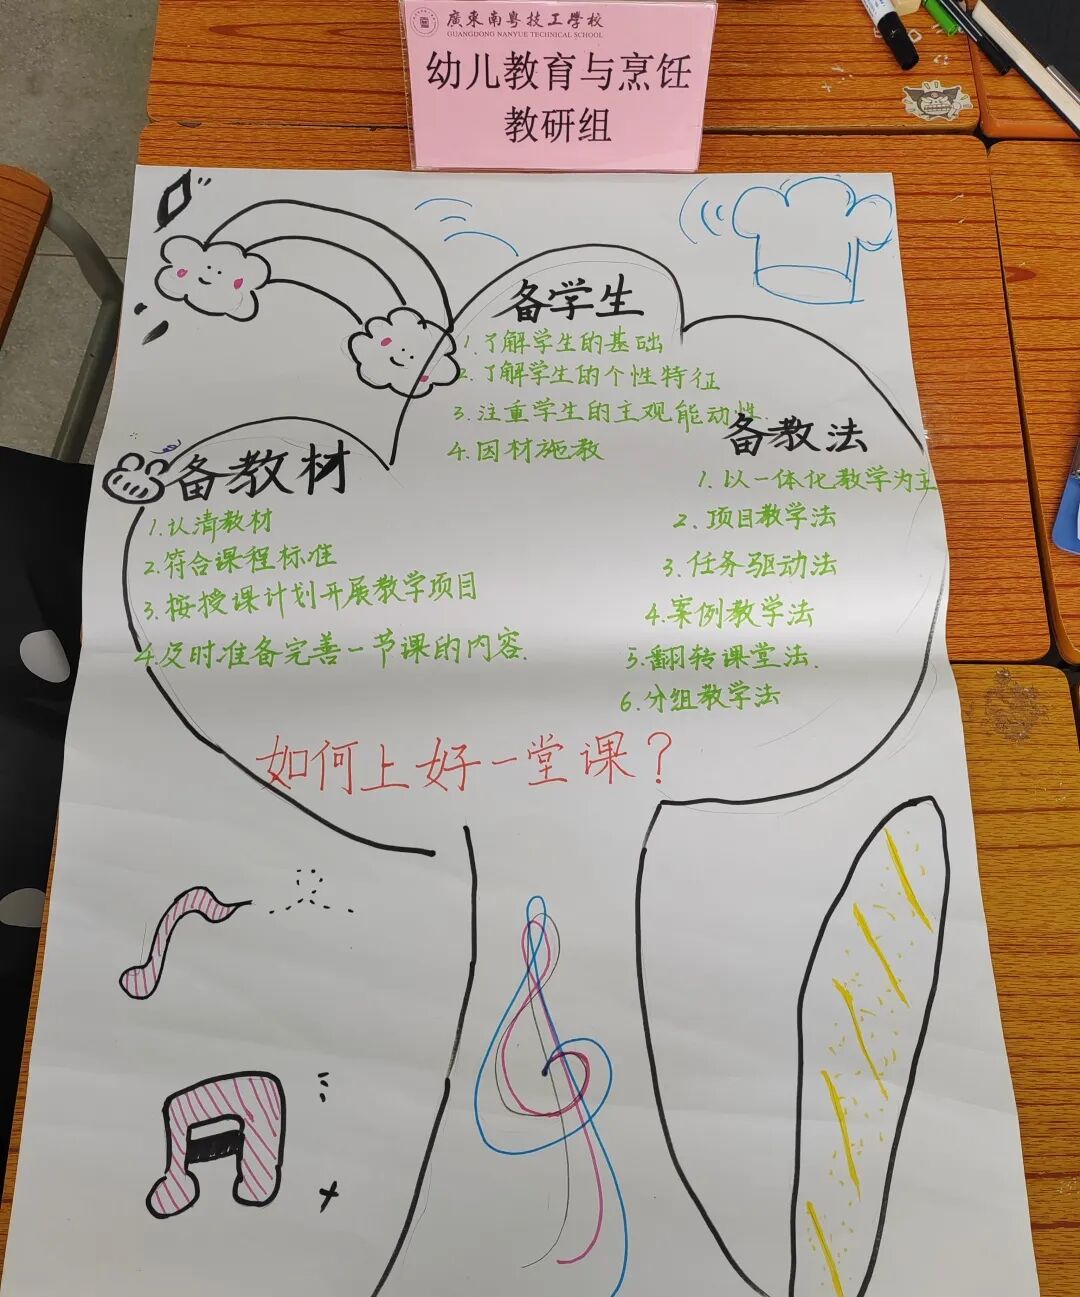 廣東南粤技工學校
GUANGDONG NANYUE TECHNICAL SCHOOL
幼儿教育与烹饪
教研组
备学生
1.了解学生的基础
2.了解学生的个性特征
3.注重学生的主观能动性.
4.因材施教
备教材
1.认清教材
2.符合课程标准
3.按授课计划开展教学项目
4.及时准备完善一节课的内容.
备教法
1.以一体化教学为主
2.项目教学法
3.任务驱动法
4.案例教学法
5.翻转课堂法.
6.分组教学法
如何上好一堂课?